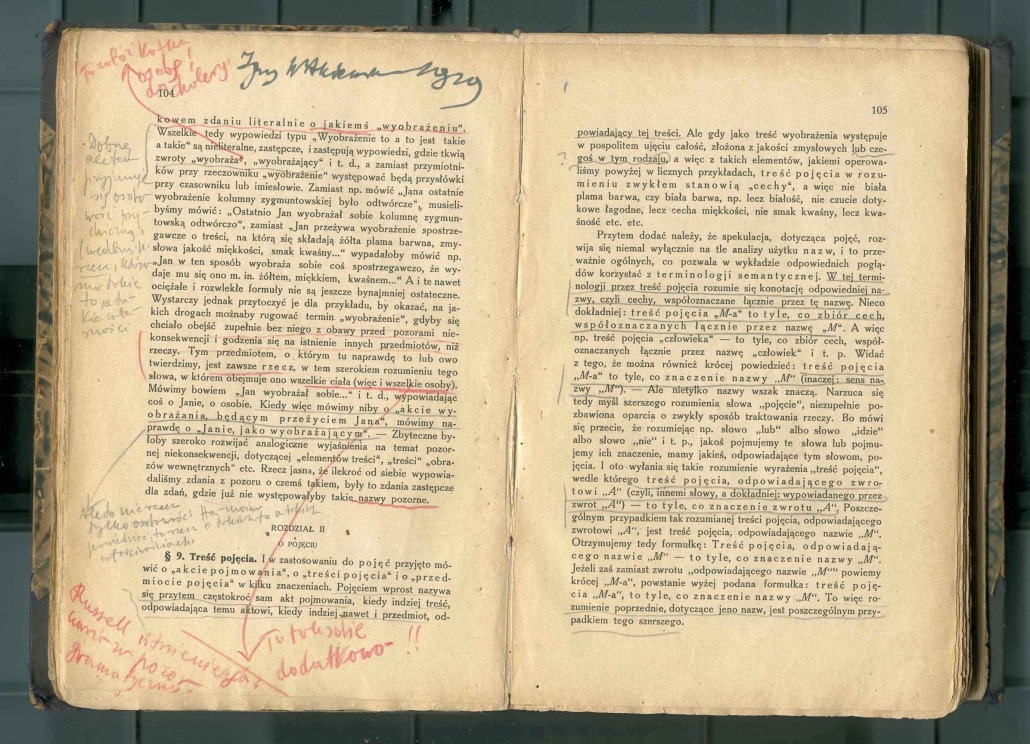 To robi Kotar
osobę
do cholery!
104
kowem zdaniu literalnie o jakiemś „wyobrażeniu".
Wszelkie tedy wypowiedzi typu „Wyobrażenie to a to jest takie
a takie" są nieliteralne, zastępcze, i zastępują wypowiedzi, gdzie tkwią
zwroty „wyobraża", „wyobrażający" i t. d., a zamiast przymiotni-
ków przy rzeczowniku „wyobrażenie" występować będą przysłówki
przy czasowniku lub imiesłowie. Zamiast np. mówić „Jana ostatnie
wyobrażenie kolumny zygmuntowskiej było odtwórcze", musieli-
byśmy mówić: „Ostatnio Jan wyobrażał sobie kolumnę zygmun-
towską odtwórczo", zamiast „Jan przeżywa wyobrażenie spostrze-
gawcze o treści, na którą się składają żółta plama barwna, zmy-
słowa jakość miękkości, smak kwaśny..." wypadałoby mówić np.
„Jan w ten sposób wyobraża sobie coś spostrzegawczo, że wy-
daje mu się ono m. in. żółtem, miękkiem, kwaśnem..." A i te nawet
ociężałe i rozwlekłe formuły nie są jeszcze bynajmniej ostateczne.
Wystarczy jednak przytoczyć je dla przykładu, by okazać, na ja-
kich drogach możnaby rugować termin „wyobrażenie", gdyby się
chciało obejść zupełnie bez niego z obawy przed pozorami nie-
konsekwencji i godzenia się na istnienie innych przedmiotów, niż
rzeczy. Tym przedmiotem, o którym tu naprawdę to lub owo
twierdzimy, jest zawsze rzecz, w tem szerokiem rozumieniu tego
słowa, w którem obejmuje ono wszelkie ciała (więc i wszelkie osoby).
Mówimy bowiem „Jan wyobrażał sobie..." i t. d., wypowiadając
coś o Janie, o osobie. Kiedy więc mówimy niby o „akcie wy-
obrażania, będącym przeżyciem Jana", mówimy na-
prawdę o „Janie, jako wyobrażającym". — Zbyteczne by-
łoby szeroko rozwijać analogiczne wyjaśnienia na temat pozor-
nej niekonsekwencji, dotyczącej „elementów treści", „treści" „obra-
zów wewnętrznych" etc. Rzecz jasna, że ilekroć od siebie wypowia-
daliśmy zdania z pozoru o czemś takiem, były to zdania zastępcze
dla zdań, gdzie już nie występowałyby takie nazwy pozorne.
ROZDZIAŁ II
O POJĘCIU
§ 9. Treść pojęcia. I w zastosowaniu do pojęć przyjęto mó-
wić o „akcie pojmowania", o „treści pojęcia" i o „przed-
miocie pojęcia" w kilku znaczeniach. Pojęciem wprost nazywa
się przytem częstokroć sam akt pojmowania, kiedy indziej treść,
odpowiadająca temu aktowi, kiedy indziej nawet i przedmiot, od-
Russell
To tak sobie
dodatkowo !!
105
powiadający tej treści. Ale gdy jako treść wyobrażenia występuje
w pospolitem ujęciu całość, złożona z jakości zmysłowych lub cze-
goś w tym rodzaju, a więc z takich elementów, jakiemi operowa-
liśmy powyżej w licznych przykładach, treść pojęcia w rozu-
mieniu zwykłem stanowią „cechy", a więc nie biała
plama barwna, czy biała barwa, np. lecz białość, nie czucie doty-
kowe łagodne, lecz cecha miękkości, nie smak kwaśny, lecz kwa-
śność etc. etc.
Przytem dodać należy, że spekulacja, dotycząca pojęć, roz-
wija się niemal wyłącznie na tle analizy użytku nazw, i to prze-
ważnie ogólnych, co pozwala w wykładzie odpowiednich poglą-
dów korzystać z terminologji semantycznej. W tej termi-
nologji przez treść pojęcia rozumie się konotację odpowiedniej na-
zwy, czyli cechy, współoznaczane łącznie przez tę nazwę. Nieco
dokładniej: treść pojęcia „M-a" to tyle, co zbiór cech,
współoznaczanych łącznie przez nazwę „M". A więc
np. treść pojęcia „człowieka" — to tyle, co zbiór cech, współ-
oznaczanych łącznie przez nazwę „człowiek" i t. p. Widać
z tego, że można również krócej powiedzieć: treść pojęcia
„M-a" to tyle, co znaczenie nazwy „M" (inaczej: sens na-
zwy „M"). — Ale nietylko nazwy wszak znaczą. Narzuca się
tedy myśl szerszego rozumienia słowa „pojęcie", niezupełnie po-
zbawiona oparcia o zwykły sposób traktowania rzeczy. Bo mówi
się przecie, że rozumiejąc np. słowo „lub" albo słowo „idzie"
albo słowo „nie" i t. p., jakoś pojmujemy te słowa lub pojmu-
jemy ich znaczenie, mamy jakieś, odpowiadające tym słowom, po-
jęcia. I oto wyłania się takie rozumienie wyrażenia „treść pojęcia",
wedle którego treść pojęcia, odpowiadającego zwro-
towi „A" (czyli, innemi słowy, a dokładniej: wypowiadanego przez
zwrot „A") — to tyle, co znaczenie zwrotu „A". Poszcze-
gólnym przypadkiem tak rozumianej treści pojęcia, odpowiadającego
zwrotowi „A", jest treść pojęcia, odpowiadającego nazwie „M".
Otrzymujemy tedy formułkę: Treść pojęcia, odpowiadają-
cego nazwie „M" — to tyle, co znaczenie nazwy „M".
Jeżeli zaś zamiast zwrotu „odpowiadającego nazwie „M"" powiemy
krócej „M-a", powstanie wyżej podana formułka: treść poję-
cia „M-a", to tyle, co znaczenie nazwy „M". To więc ro-
zumienie poprzednie, dotyczące jeno nazw, jest poszczególnym przy-
padkiem tego szerszego.